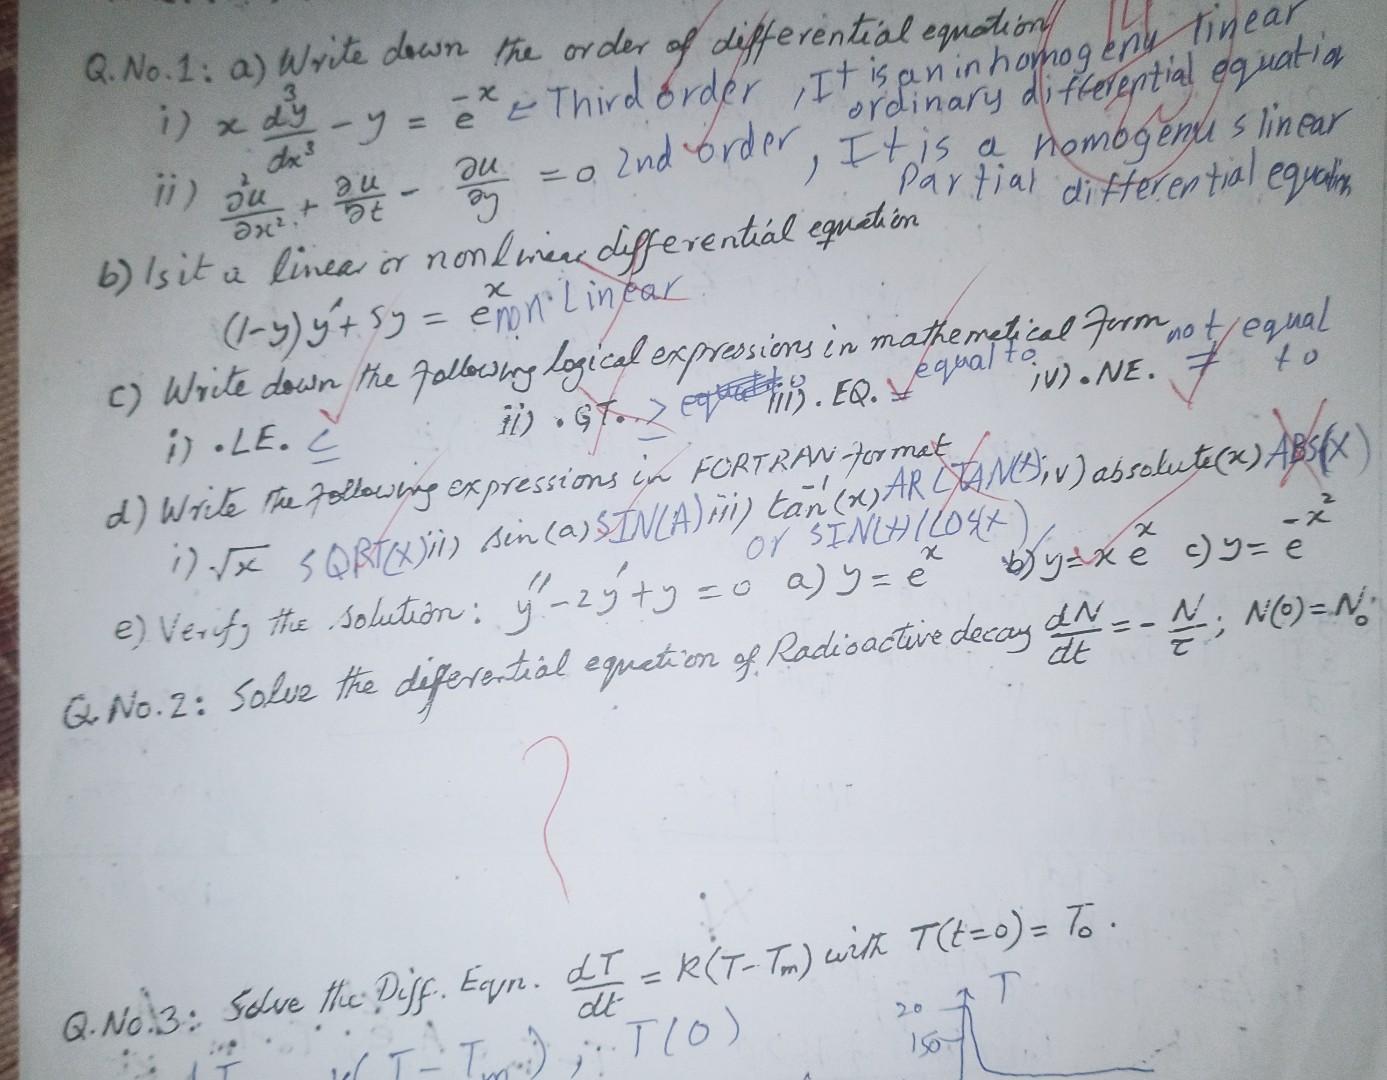 Q.No.1: a) Write down the order of differential equation
i) x d³y/dx³ - y = e⁻ˣ Third order, It is an inhomogenu linear
ordinary differential equation
ii) ∂²u/∂x² + ∂u/∂t - ∂u/∂y = 0 2nd order, It is a homogenus linear
Partial differential equation
b) Is it a linear or nonlinear differential equation
(1-y)y′ + 5y = eˣ non-Linear
c) Write down the following logical expressions in mathematical form
i) .LE. ≤ ii) .GT. ≥ iii) .EQ. = equal to iv) .NE. ≠ not equal to
d) Write the following expressions in FORTRAN format
i) √x SQRT(X) ii) sin(a) SIN(A) iii) tan⁻¹(x) iv) absolute(x) ABS(X)
or
e) Verify the solution: y″ - 2y′ + y = 0 a) y = eˣ b) y = xeˣ c) y = e^-x²
Q.No.2: Solve the differential equation of Radioactive decay dN/dt = - N/τ; N(0) = N₀.
?
Q.No.3: Solve the Diff. Eqn. dT/dt = K(T-Tm) with T(t=0) = T₀.
(T - Tm), T(0)
T
20
150